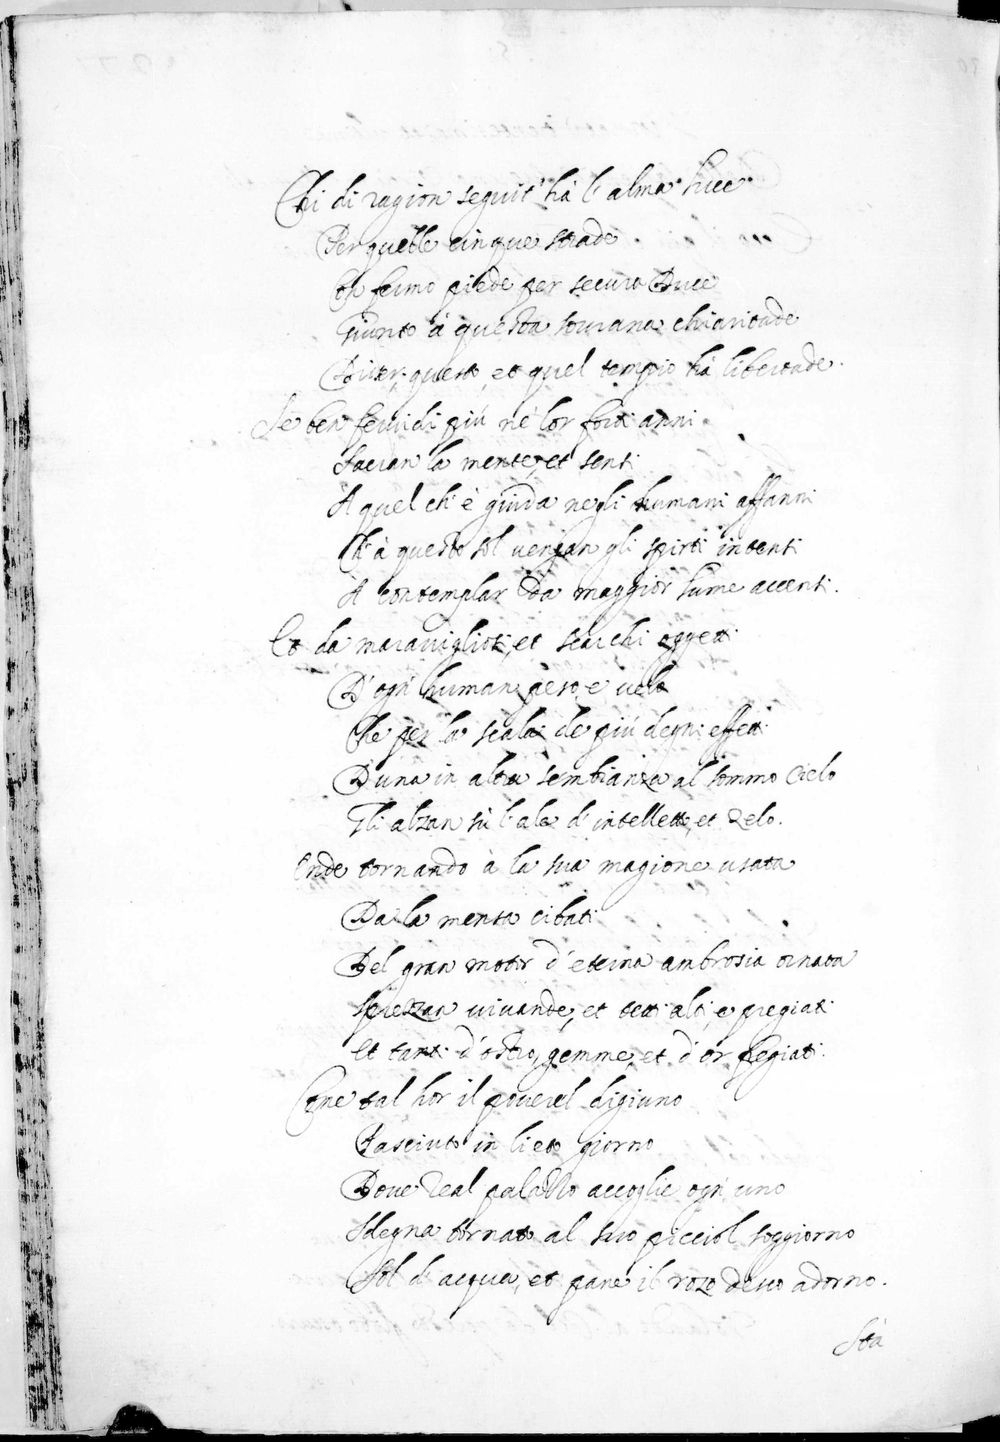 Chi di ragion seguit' hà l' alma luce
Per quelle cinque strade
Co'l fermo piede per secura Duce
Giunto à questa sourana chiaritade
questo, et quel tempio hà libertade.
Se ben feruidi più ne' lor forti anni
Sacran la mente, et senti
A quel ch' è guida negli humani affanni
Ch' à questo sol vengan gli spirti intenti
A contemplar da maggior lume accenti.
Et da marauigliosi, et scarchi oggetti
D' ogn' human peso, e velo
Che per la scala de più degni effetti
D'una in altra sembianza al sommo Cielo
Gli alzan sù l' ale d' intelletto, et zelo.
Onde tornando à la sua magione usata
Da la mensa cibati
Del gran motor d' eterna ambrosia ornata
Sprezzan viuande, et tetti alti, e pregiati
Et tanti d' ostro, gemme, et d' or fregiati.
Come tal hor il pouerel digiuno
Pasciuto in lieto giorno
Doue Real palazzo accoglie ogn' uno
Sdegna tornato al suo picciol soggiorno
Sol d' acqua, et pane il rozo desco adorno.
Stà